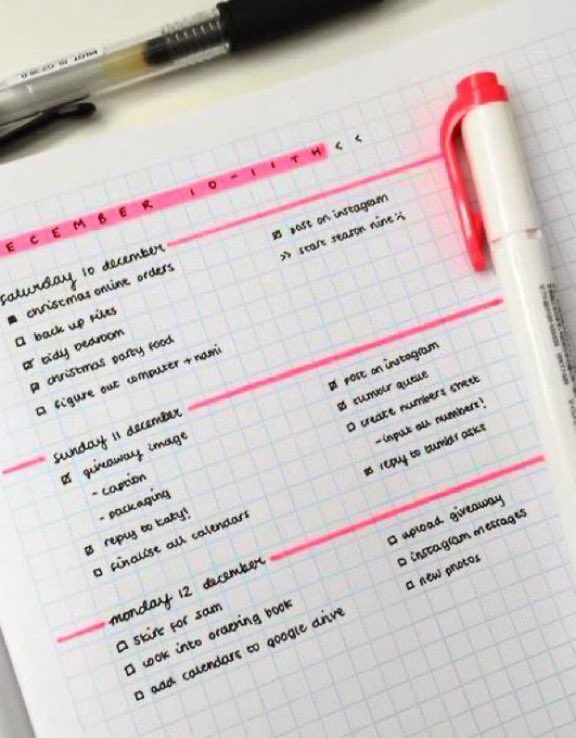 ECEMBER 10-11TH < <
saturday 10 december
christmas online orders
back up files
tidy bedroom
christmas party food
figure out computer + nami
post on instagram
>> start season nine
sunday 11 december
giveaway image
- caption
- packaging
reply to katy!
finalise all calendars
post on instagram
tumblr queue
create numbers sheet
- input all numbers!
reply to tumblr asks
monday 12 december
skirt for sam
look into ordering book
add calendars to google drive
upload giveaway
instagram messages
new photos